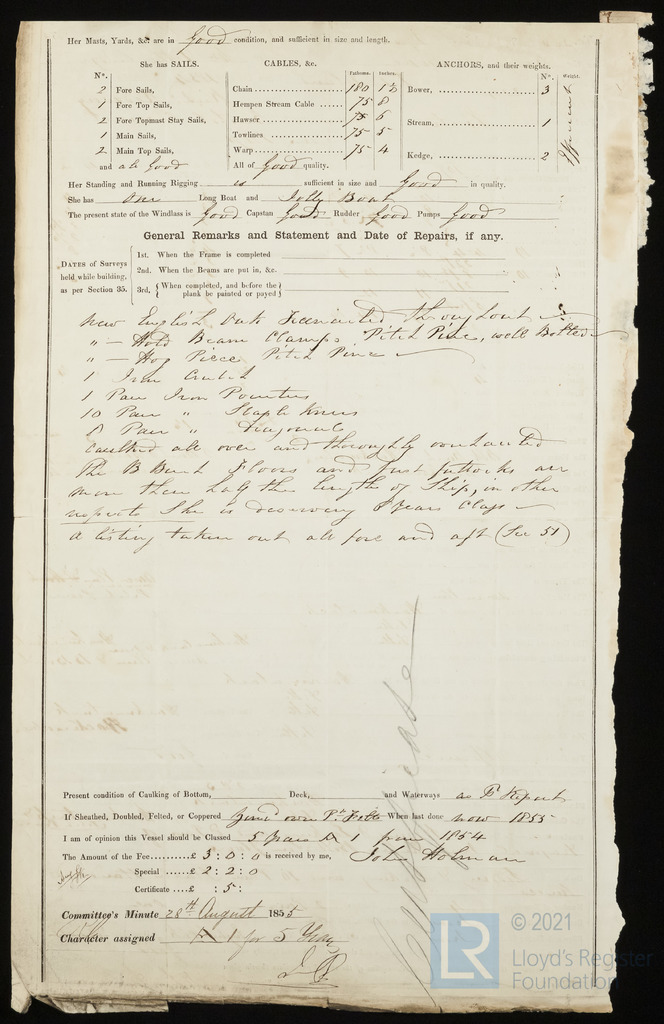 Her Masts, Yards, &c. are in Good condition, and sufficient in size and length.
She has SAILS.
Nº.
2 Fore Sails,
1 Fore Top Sails,
2 Fore Topmast Stay Sails,
1 Main Sails,
2 Main Top Sails,
and all Good
CABLES, &c.
Fathoms. Inches.
Chain 180
Hempen Stream Cable 75 8
Hawser 75 6
Towlines 75 5
Warp 75 4
All of Good quality.
ANCHORS, and their weights.
Nº. Weight.
Bower, 3
Stream, 1
Kedge, 2
Her Standing and Running Rigging is sufficient in size and Good in quality.
She has One Long Boat and Jolly Boat
The present state of the Windlass is Good Capstan Good Rudder Good Pumps Good
General Remarks and Statement and Date of Repairs, if any.
DATES of Surveys
held while building,
as per Section 35.
1st. When the Frame is completed
2nd. When the Beams are put in, &c.
3rd. When completed, and before the
plank be painted or payed
New English Oak throughout
" — Hold Beam Clamps Pitch Pine, well Bolted
" — Hog Piece Pitch Pine
1 Iron Crutch
1 Pair Iron Pointers
10 Pair " Staple Knees
8 Pair " Diagonals
Caulked all over and thoroughly overhauled
The Floors and first futtocks are
more than half the length of Ship, in other
respects She is deserving 8 years Class
A listing taken out all fore and aft (Sec 51)
Present condition of Caulking of Bottom, Deck, and Waterways as Pr Report
If Sheathed, Doubled, Felted, or Coppered Zinc over Pt Felt When last done now 1855
I am of opinion this Vessel should be Classed 5 years A 1 from 1854
The Amount of the Fee £ 3 : 0 : 0 is received by me, John Holman
Special £ 2 : 2 : 0
Certificate £ : 5 :
Committee's Minute 28th August 1855
Character assigned A 1 for 5 Years
LR
© 2021
Lloyd's Register
Foundation